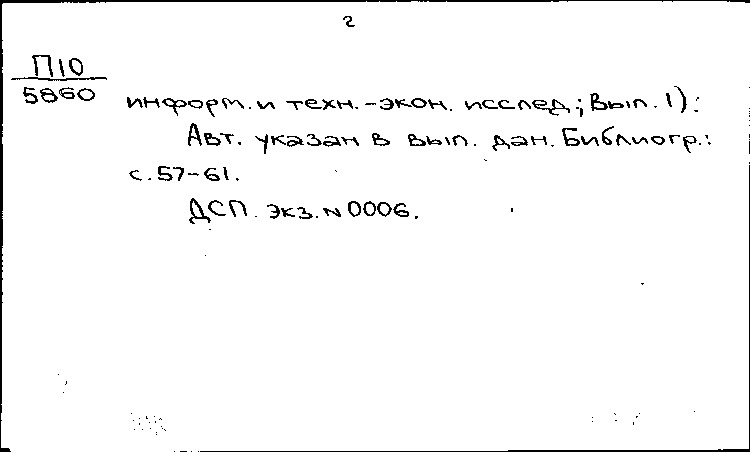 2
П10
5860
информ. и техн.-экон. исслед.; Вып. 1):
Авт. указан в вып. дан. Библиогр.:
с. 57-61.
ДСП. экз. N 0006.